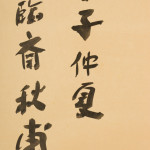 子仲夏
臨斎秋